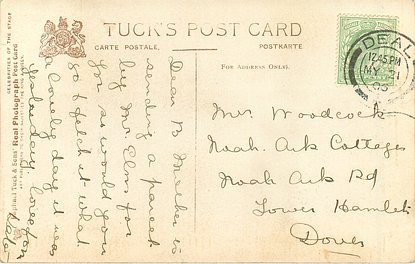 TUCK'S POST CARD
CARTE POSTALE.
POSTKARTE.
(FOR ADDRESS ONLY.)
CELEBRITIES OF THE STAGE
Raphael Tuck & Sons' Real Photograph Post Card
DEAL
12.45 PM
MY 21
Dear B Mother is
sending a parcel
by Mr Elms for
you so would you
go & fetch it what
a lovely day it was
yesterday. Love from
Kate
Mrs Woodcock
Noah. Ark Cottages
Noah Ark Rd
Lower Hamlet
Dover